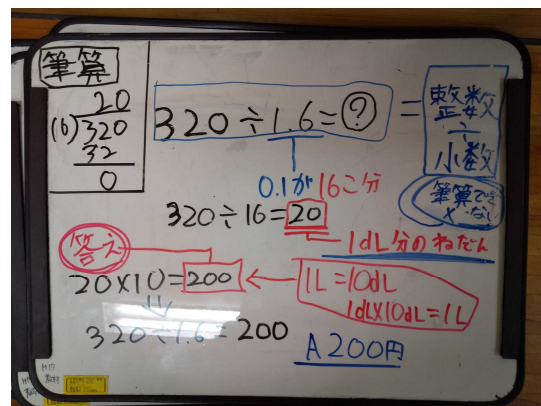 筆算
20
16)320
32
0
320÷1.6=?
=
整数
÷
小数
0.1が16こ分
筆算でき
ない
320÷16=20
1dL分のねだん
答え
20×10=200
1L=10dL
1dL×10dL=1L
320÷1.6=200
A 200円